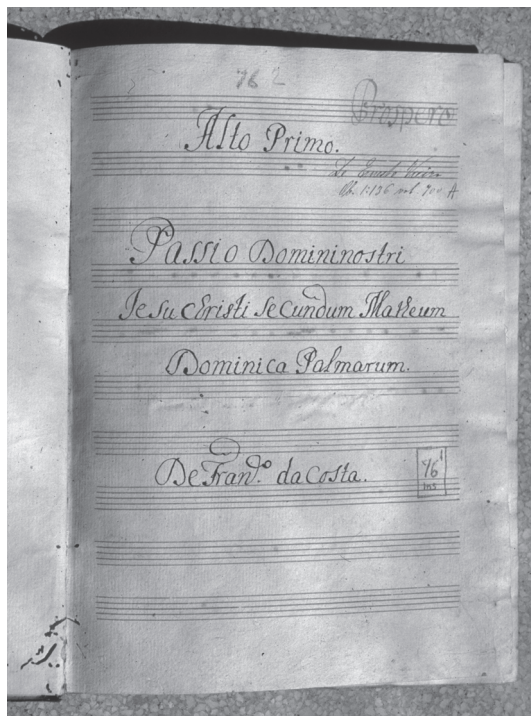 76 2
Prospero
Alto Primo.
Passio Domini nostri
Jesu Christi secundum Matheum
Dominica Palmarum.
De Fran.co da Costa.
76 1
ins